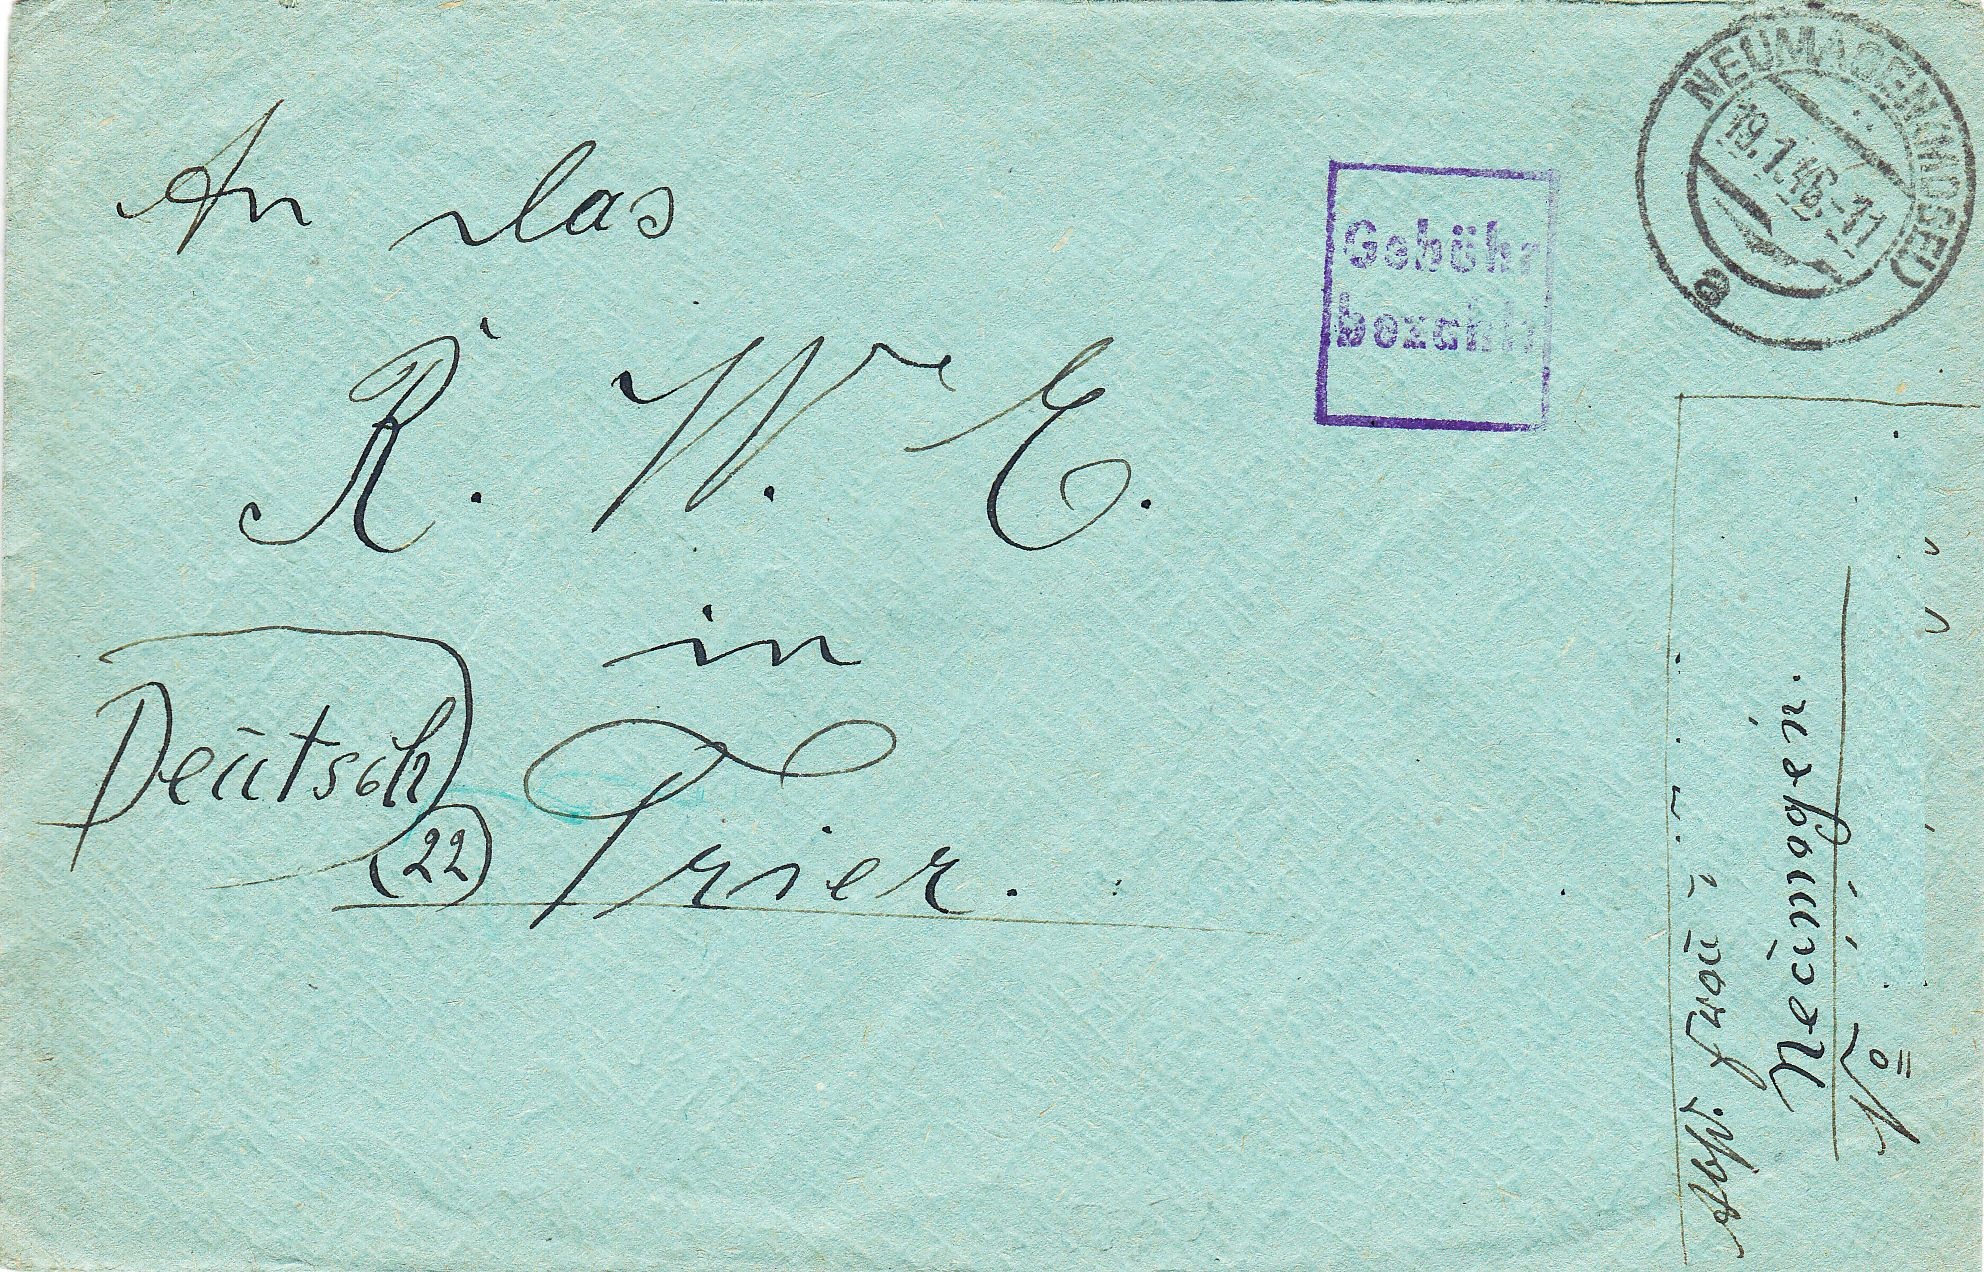 An das
R. W. E.
in
Deutsch
(22) Trier.
Gebühr
bezahlt
NEUMAGEN (MOSEL)
19.1.46.-11
a
Abs. Frau
Neumagen.